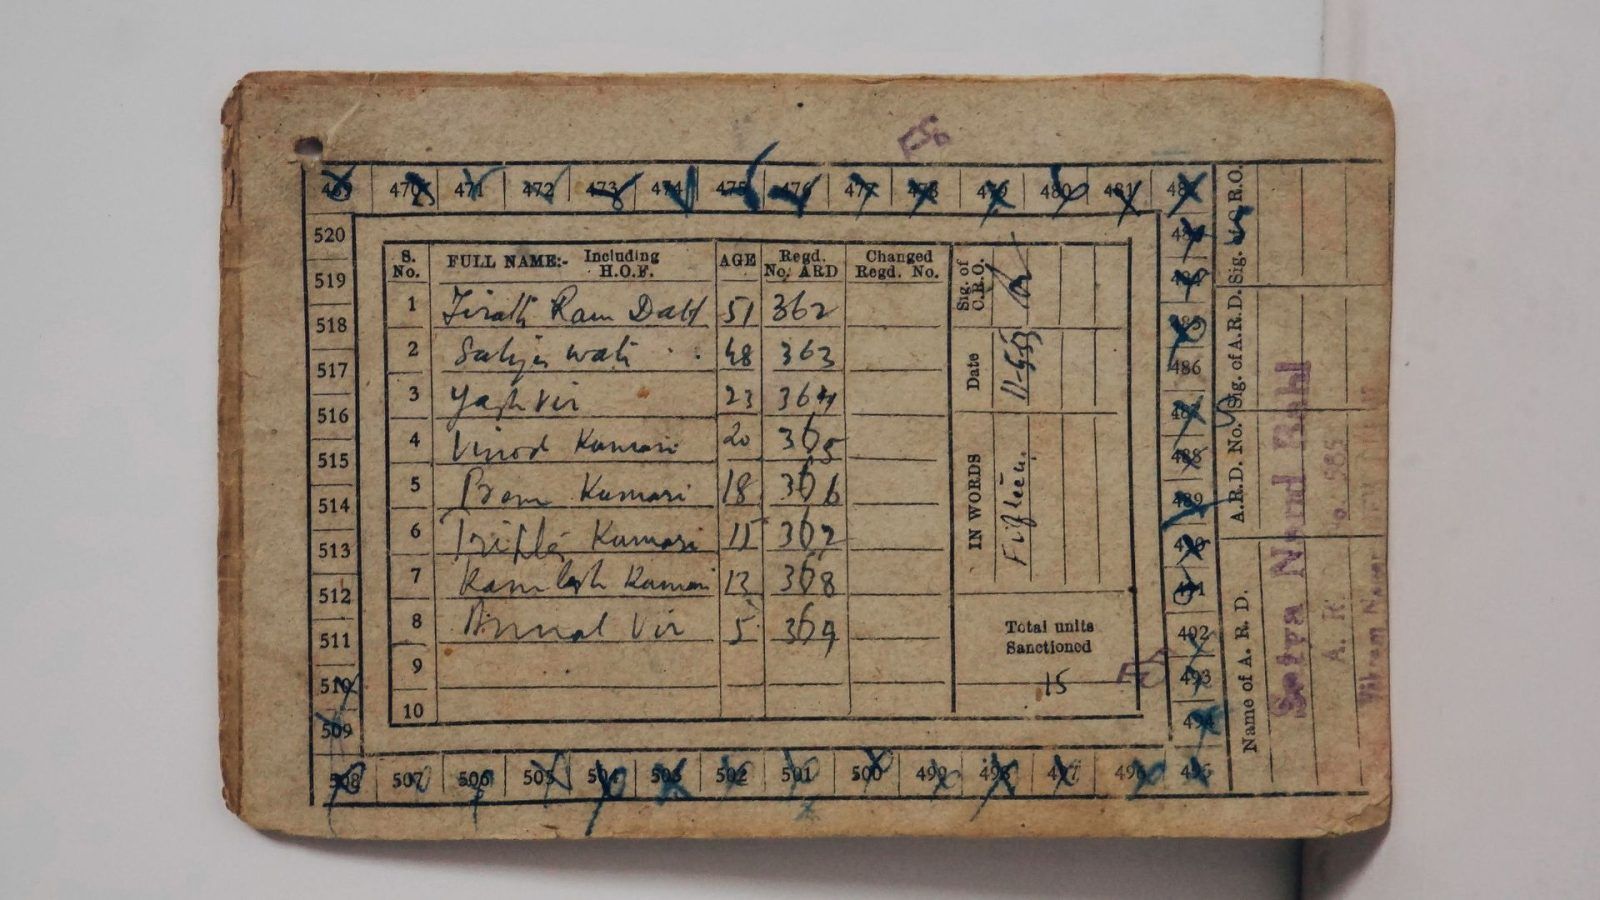 469 470 471 472 473 474 475 476 477 478 479 480 481 482
520
519
518
517
516
515
514
513
512
511
510
509
508 507 506 505 504 503 502 501 500 499 498 497 496 495
483
484
485
486
487
488
489
490
491
492
493
494
S. No. FULL NAME:- Including H.O.F. AGE Regd. No. ARD Changed Regd. No.
1 Tirath Ram Datt 51 362
2 Satya wati 48 363
3 Yash Vir 23 364
4 Vinod Kumari 20 365
5 Prem Kumari 18 366
6 Tripta Kumari 15 367
7 Kamlesh Kumari 13 368
8 Vir 5 369
9
10
Sig. of C.R.O.
Date
IN WORDS Fifteen
Total units
Sanctioned
15
Sig. of A.R.D. Sig. C.R.O.
A.R.D. No.
Name of A. R. D.
Satya Nand Bahl